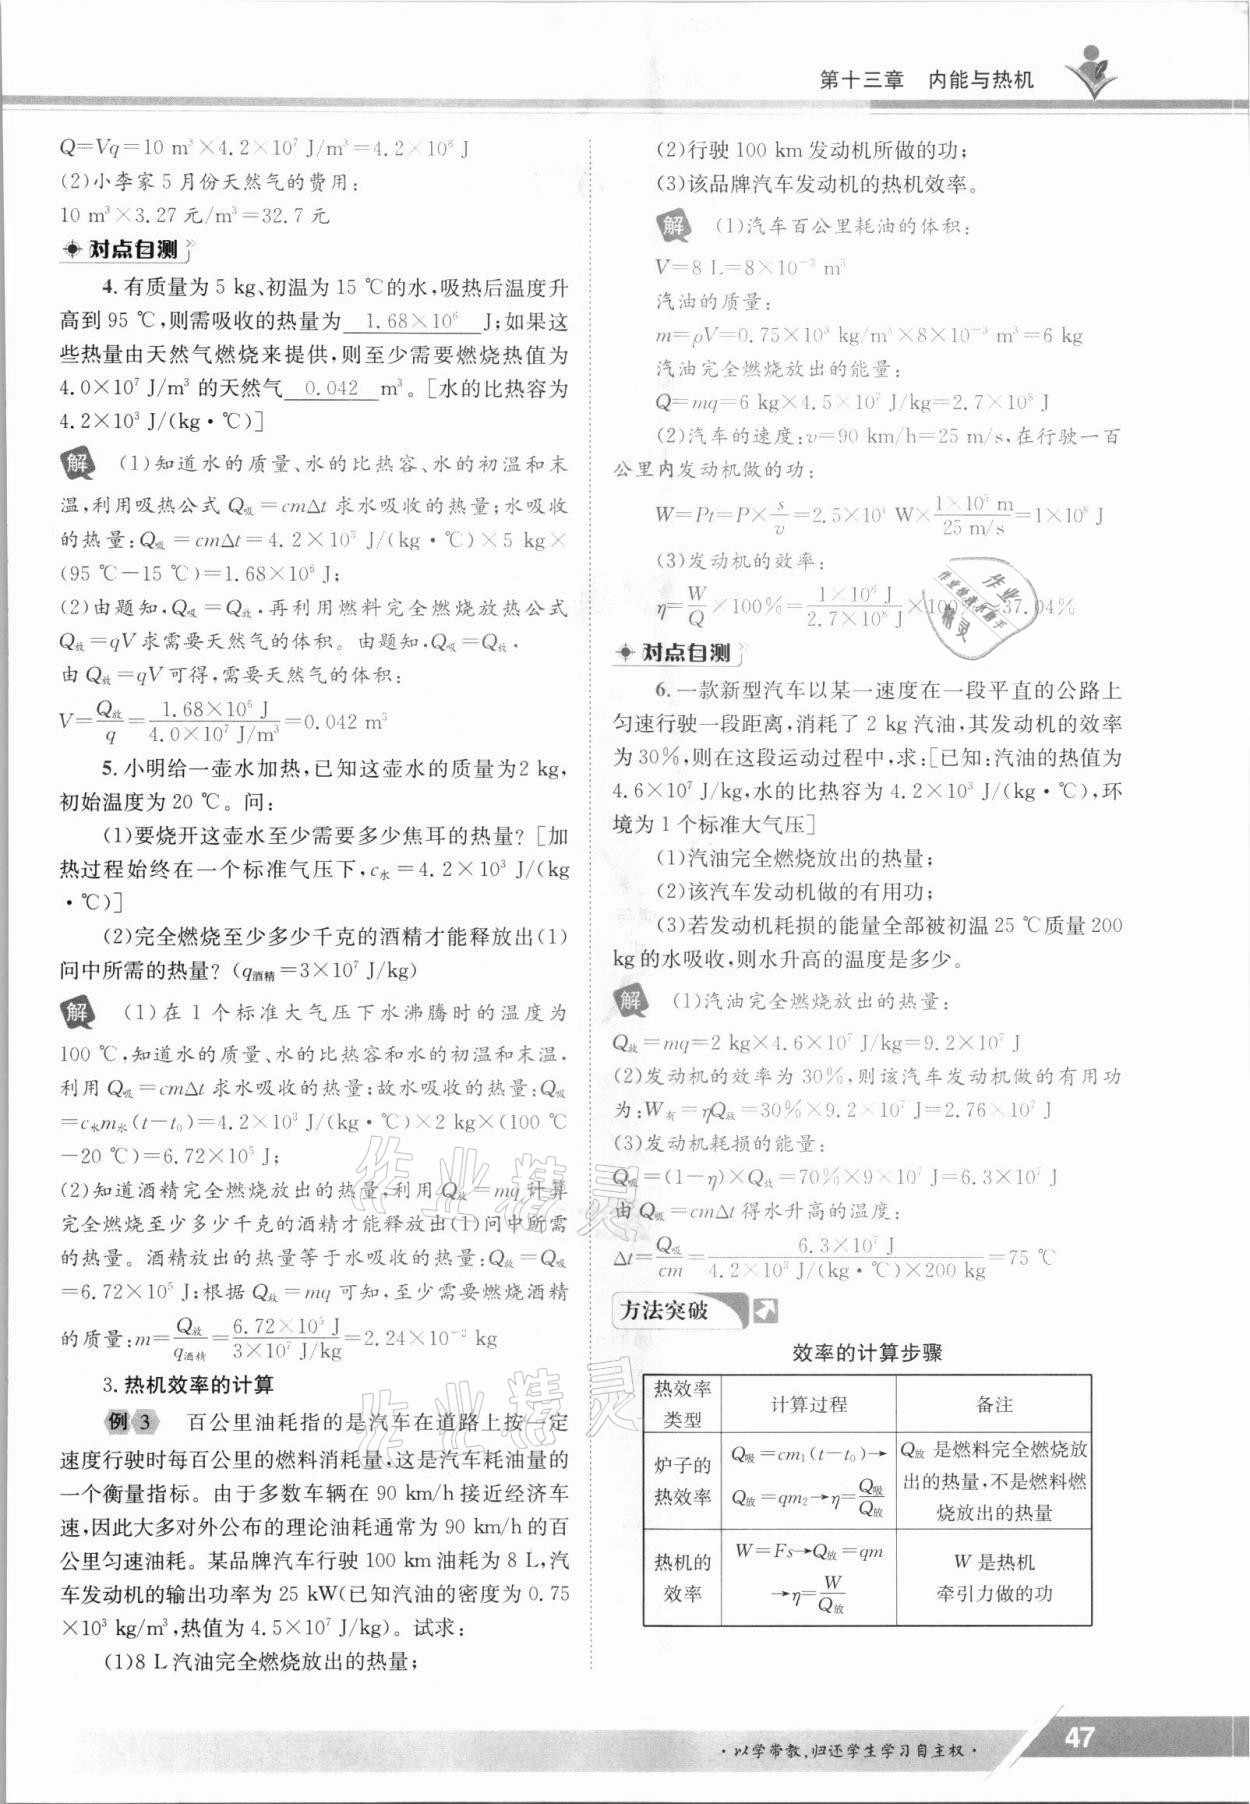 第十三章 内能与热机
Q=Vq=10 m³×4.2×10⁷ J/m³=4.2×10⁸ J
(2)小李家5月份天然气的费用:
10 m³×3.27元/m³=32.7元
对点自测
4. 有质量为5 kg、初温为15 ℃的水,吸热后温度升
高到95 ℃,则需吸收的热量为 1.68×10⁶ J;如果这
些热量由天然气燃烧来提供,则至少需要燃烧热值为
4.0×10⁷ J/m³的天然气 0.042 m³。[水的比热容为
4.2×10³ J/(kg·℃)]
解 (1)知道水的质量、水的比热容、水的初温和末
温,利用吸热公式Q吸=cmΔt求水吸收的热量;水吸收
的热量:Q吸=cmΔt=4.2×10³ J/(kg·℃)×5 kg×
(95 ℃-15 ℃)=1.68×10⁶ J;
(2)由题知,Q吸=Q放,再利用燃料完全燃烧放热公式
Q放=qV求需要天然气的体积。由题知,Q吸=Q放,
由Q放=qV可得,需要天然气的体积:
V=Q放/q=1.68×10⁶ J/4.0×10⁷ J/m³=0.042 m³
5. 小明给一壶水加热,已知这壶水的质量为2 kg,
初始温度为20 ℃。问:
(1)要烧开这壶水至少需要多少焦耳的热量?[加
热过程始终在一个标准气压下,c水=4.2×10³ J/(kg
·℃)]
(2)完全燃烧至少多少千克的酒精才能释放出(1)
问中所需的热量?(q酒精=3×10⁷ J/kg)
解 (1)在1个标准大气压下水沸腾时的温度为
100 ℃,知道水的质量、水的比热容和水的初温和末温,
利用Q吸=cmΔt求水吸收的热量;故水吸收的热量:Q吸
=c水m水(t-t₀)=4.2×10³ J/(kg·℃)×2 kg×(100 ℃
-20 ℃)=6.72×10⁵ J;
(2)知道酒精完全燃烧放出的热量,利用Q放=mq计算
完全燃烧至少多少千克的酒精才能释放出(1)问中所需
的热量。酒精放出的热量等于水吸收的热量:Q放=Q吸
=6.72×10⁵ J;根据Q放=mq可知,至少需要燃烧酒精
的质量:m=Q放/q酒精=6.72×10⁵ J/3×10⁷ J/kg=2.24×10⁻² kg
3. 热机效率的计算
例3 百公里油耗指的是汽车在道路上按一定
速度行驶时每百公里的燃料消耗量,这是汽车耗油量的
一个衡量指标。由于多数车辆在90 km/h接近经济车
速,因此大多对外公布的理论油耗通常为90 km/h的百
公里匀速油耗。某品牌汽车行驶100 km油耗为8 L,汽
车发动机的输出功率为25 kW(已知汽油的密度为0.75
×10³ kg/m³,热值为4.5×10⁷ J/kg)。试求:
(1)8 L汽油完全燃烧放出的热量;
(2)行驶100 km发动机所做的功;
(3)该品牌汽车发动机的热机效率。
解 (1)汽车百公里耗油的体积:
V=8 L=8×10⁻³ m³
汽油的质量:
m=ρV=0.75×10³ kg/m³×8×10⁻³ m³=6 kg
汽油完全燃烧放出的能量:
Q=mq=6 kg×4.5×10⁷ J/kg=2.7×10⁸ J
(2)汽车的速度:v=90 km/h=25 m/s,在行驶一百
公里内发动机做的功:
W=Pt=P×s/v=2.5×10⁴ W×1×10⁵ m/25 m/s=1×10⁸ J
(3)发动机的效率:
η=W/Q×100%=1×10⁸ J/2.7×10⁸ J×100%≈37.04%
对点自测
6. 一款新型汽车以某一速度在一段平直的公路上
匀速行驶一段距离,消耗了2 kg汽油,其发动机的效率
为30%,则在这段运动过程中,求:[已知:汽油的热值为
4.6×10⁷ J/kg,水的比热容为4.2×10³ J/(kg·℃),环
境为1个标准大气压]
(1)汽油完全燃烧放出的热量;
(2)该汽车发动机做的有用功;
(3)若发动机耗损的能量全部被初温25 ℃质量200
kg的水吸收,则水升高的温度是多少。
解 (1)汽油完全燃烧放出的热量:
Q放=mq=2 kg×4.6×10⁷ J/kg=9.2×10⁷ J
(2)发动机的效率为30%,则该汽车发动机做的有用功
为:W有=ηQ放=30%×9.2×10⁷ J=2.76×10⁷ J
(3)发动机耗损的能量:
Q吸=(1-η)×Q放=70%×9×10⁷ J=6.3×10⁷ J
由Q吸=cmΔt得水升高的温度:
Δt=Q吸/cm=6.3×10⁷ J/4.2×10³ J/(kg·℃)×200 kg=75 ℃
方法突破
效率的计算步骤
热效率类型 计算过程 备注
炉子的热效率 Q吸=cm₁(t-t₀)→Q放=qm₂→η=Q吸/Q放 Q放是燃料完全燃烧放出的热量,不是燃料燃烧放出的热量
热机的效率 W=Fs→Q放=qm→η=W/Q放 W是热机牵引力做的功
·以学带教,归还学生学习自主权·
47
作业精灵
作业精灵
作业精灵